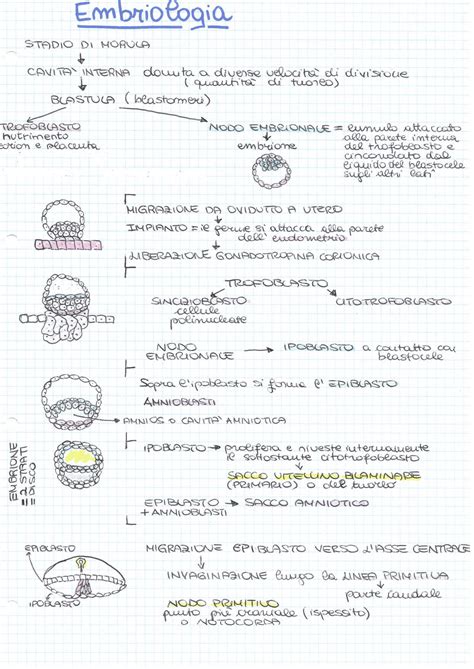 Embriologia
STADIO DI MORULA
CAVITA' INTERNA dovuta a diverse velocità di divisione
(quantità di tuorlo)
BLASTULA (blastomeri)
TROFOBLASTO
nutrimento
corion e placenta
NODO EMBRIONALE = cumulo attaccato
alla parete interna
del trofoblasto e
circondato dal
liquido del blastocele
sugli altri lati
embrione
MIGRAZIONE DA OVIDUTTO A UTERO
IMPIANTO = il germe si attacca alla parete
dell'endometrio
LIBERAZIONE GONADOTROFINA CORIONICA
TROFOBLASTO
SINCIZIOBLASTO
cellule
polinucleate
CITOTROFOBLASTO
NODO
EMBRIONALE
IPOBLASTO a contatto col
blastocele
Sopra l'ipoblasto si forma l'EPIBLASTO
AMNIOBLASTI
AMNIOS O CAVITA' AMNIOTICA
EMBRIONE
= 2 STRATI
= DISCO
IPOBLASTO prolifera e riveste internamente
il sottostante citotrofoblasto
SACCO VITELLINO BILAMINARE
(PRIMARIO) o del tuorlo
EPIBLASTO SACCO AMNIOTICO
+ AMNIOBLASTI
EPIBLASTO
IPOBLASTO
MIGRAZIONE EPIBLASTO VERSO L'ASSE CENTRALE
INVAGINAZIONE lungo la LINEA PRIMITIVA
parte caudale
NODO PRIMITIVO
punto più craniale (ispessito)
o NOTOCORDA